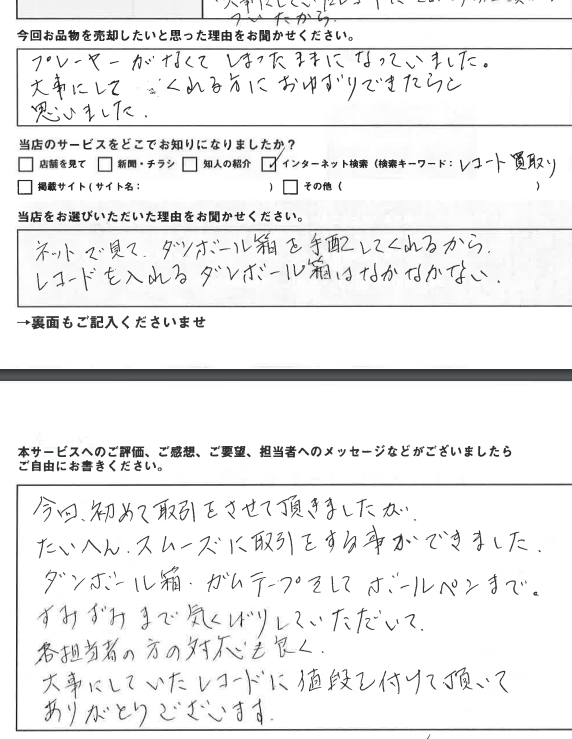 ついたから.
今回お品物を売却したいと思った理由をお聞かせください。
プレーヤーがなくてしまったままになっていました。
大事にしてくれる方におゆずりできたらと
思いました.
当店のサービスをどこでお知りになりましたか？
□ 店舗を見て □ 新聞・チラシ □ 知人の紹介 ☑ インターネット検索（検索キーワード：レコード買取り
□ 掲載サイト(サイト名： ) □ その他（ ）
当店をお選びいただいた理由をお聞かせください。
ネットで見て、ダンボール箱を手配してくれるから.
レコードを入れるダンボール箱はなかなかない.
→裏面もご記入くださいませ
本サービスへのご評価、ご感想、ご要望、担当者へのメッセージなどがございましたら
ご自由にお書きください。
今回、初めて取引をさせて頂きましたが、
たいへん、スムーズに取引をする事ができました.
ダンボール箱・ガムテープそしてボールペンまで。
すみずみまで気くばりしていただいて、
各担当者の方の対応も良く、
大事にしていたレコードに値段を付けて頂いて
ありがとうございます.